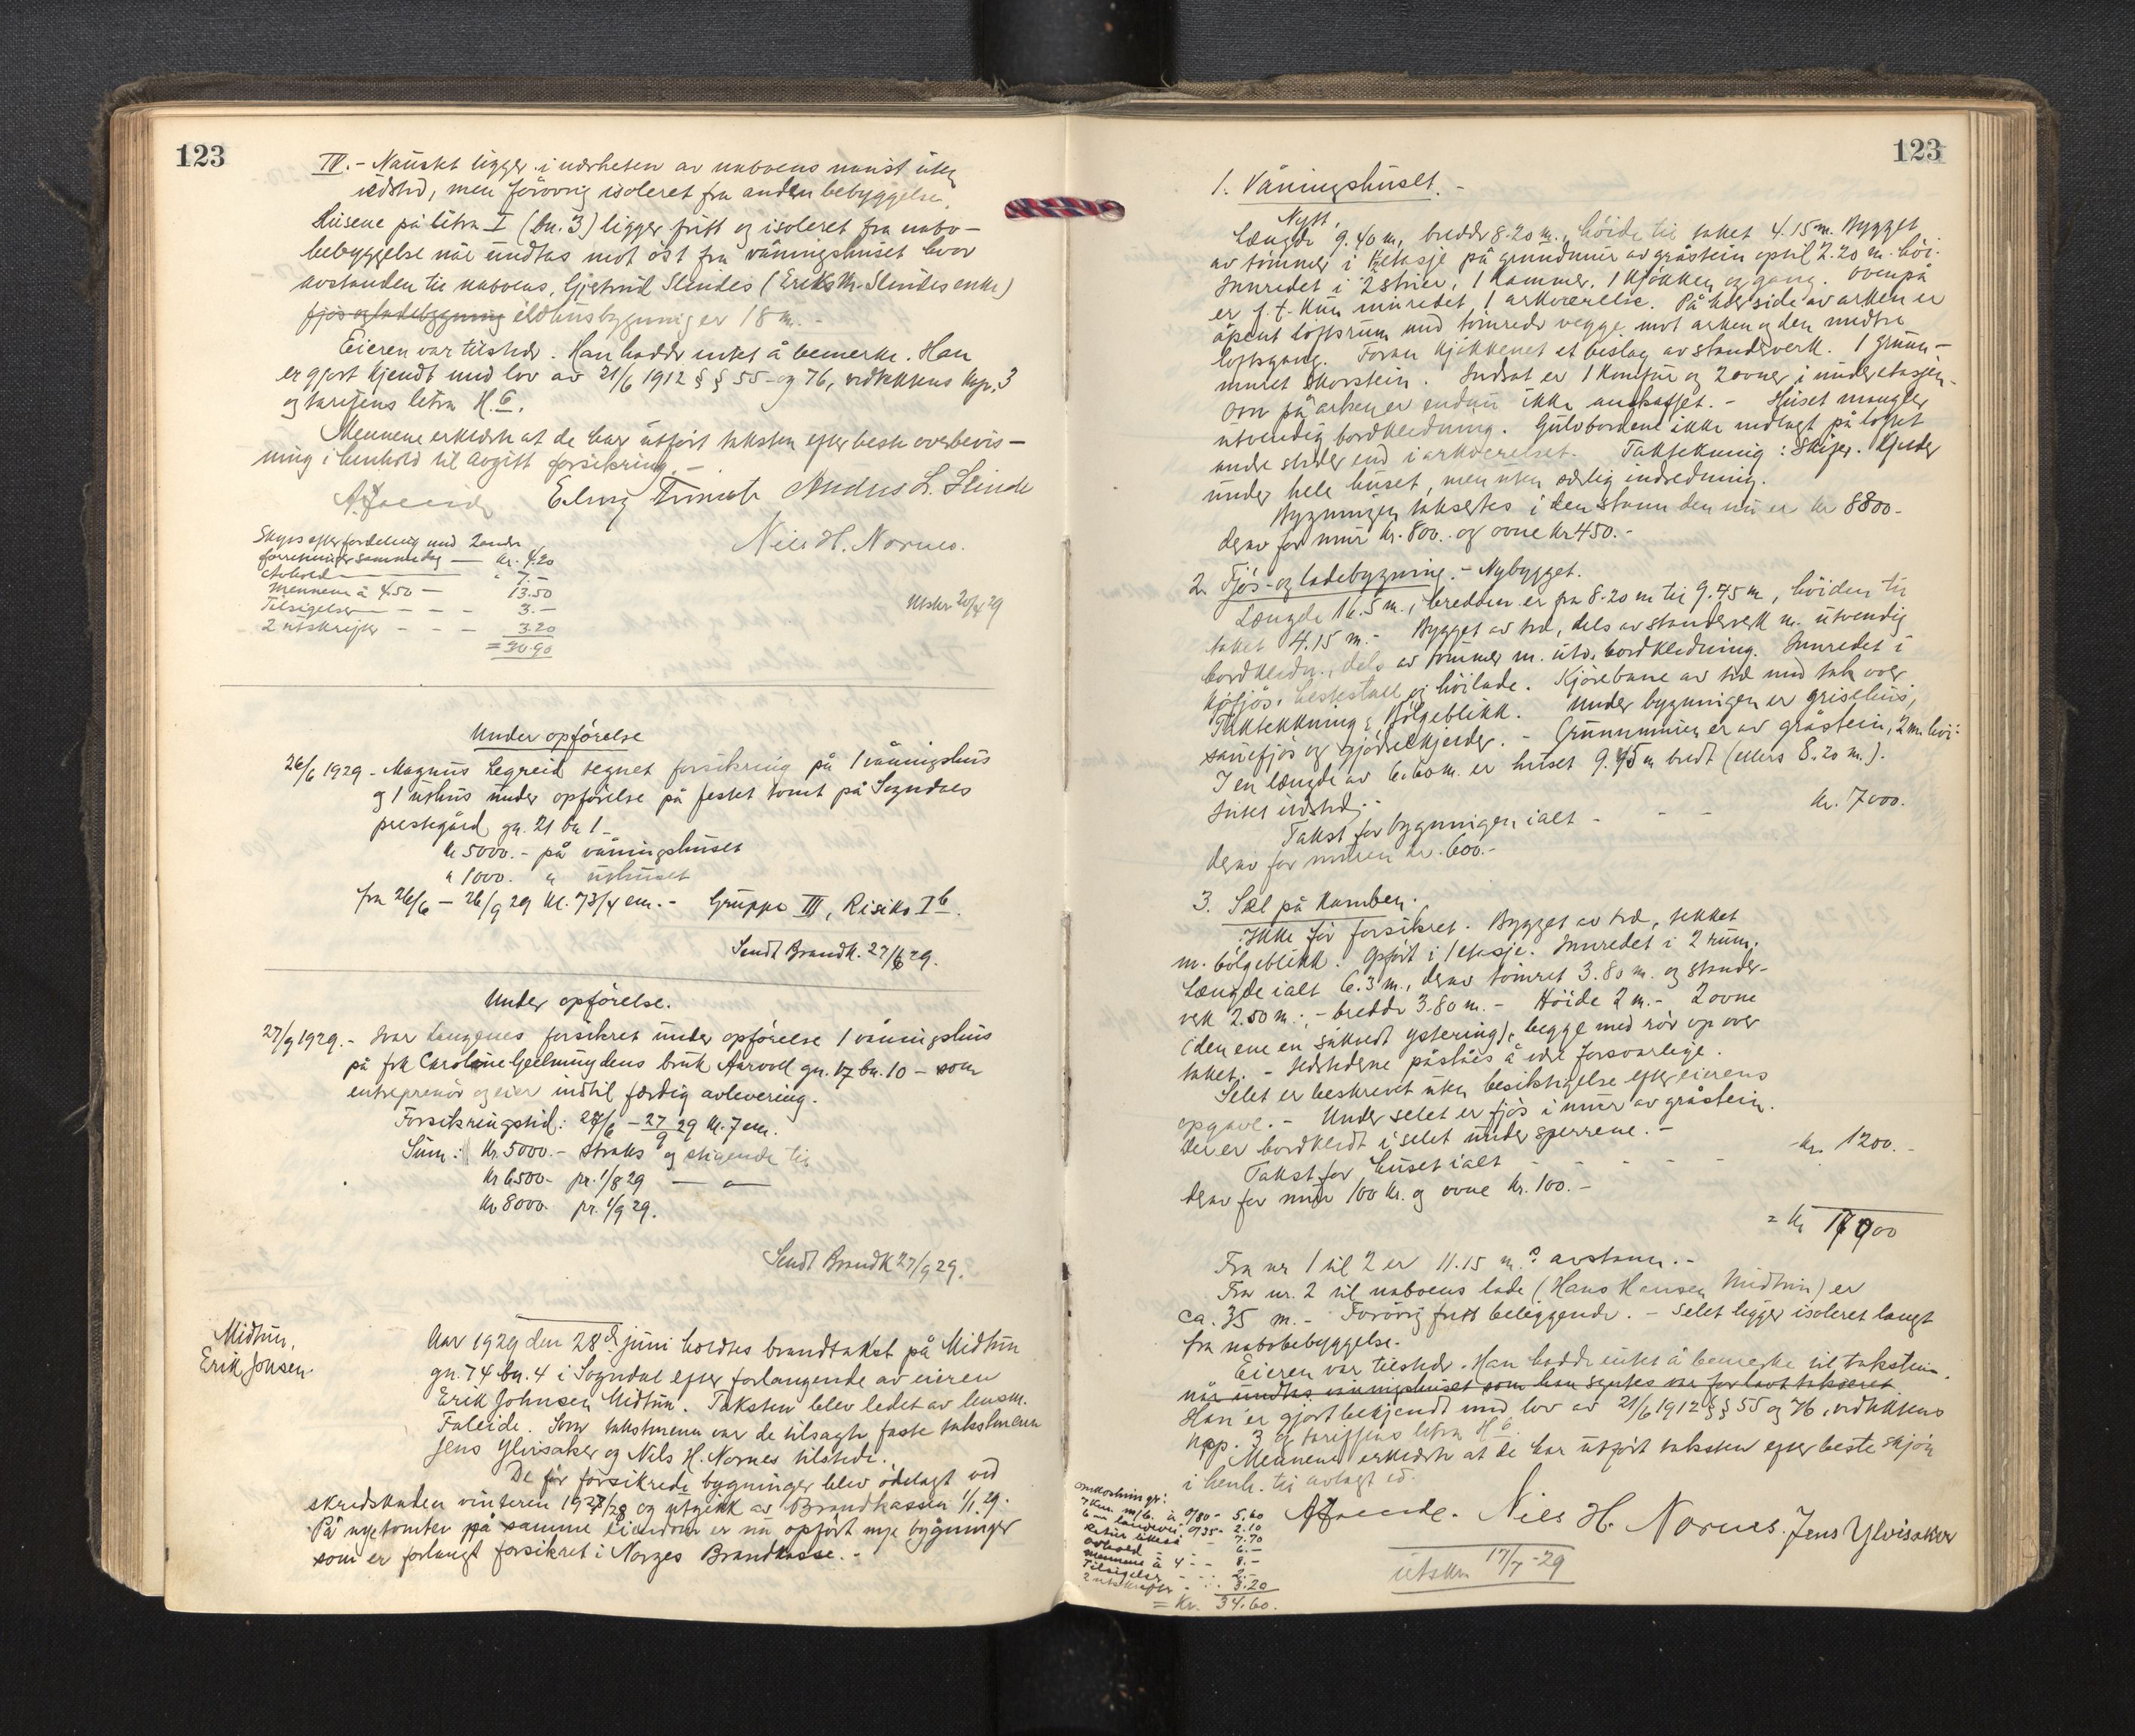 123
IV. - Naustet ligger i nærheten av naboens naust uten
ildsted, men forøvrig isoleret fra anden bebyggelse.
Husene på litra I (bn. 3) ligger fritt og isoleret fra nabo-
bebyggelse når undtas mot øst fra våningshuset hvor
avstanden til naboens, Gjertrud Slindes (Erik M. Slindes enke)
fjøs og ladebygning eldhusbygning er 18 m. -
Eieren var tilstede. Han hadde intet å bemerke. Han
er gjort kjendt med lov av 21/6 1912 §§ 55 og 76, vedtektens kap. 3
og tariffens litra H. 6.
Mennene erklærte at de har utført taksten efter beste overbevis-
ning i henhold til avgitt forsikring. -
A. Faleide Anders L. Slinde
Nils H. Nornes.
Skyss efter fordeling med 2 andre
forretninger samme dag — kr. 4.20
Avhold — " 7.-
Mennene à 4.50 — 13.50
Tilsigelser - - - 3.-
2 utskrifter - - - 3.20
= 30.90
Utskr 20/4 29
Under opførelse
26/6 1929 - Magnus Legreid tegnet forsikring på 1 våningshus
og 1 uthus under opførelse på festet tomt på Sogndals
prestegård gn. 21 bn 1 -
kr 5000.- på våningshuset
" 1000. " uthuset
fra 26/6 - 26/9 29 kl. 7 3/4 em. - Gruppe III, Risiko I b.
Sendt Brandk. 27/6 29.
Under opførelse.
27/9 1929. - Ivar Langenes forsikret under opførelse 1 våningshus
på frk Caroline Geelmuydens bruk Aarvoll gn. 17 bn. 10 - som
entreprenør og eier indtil færdig avlevering.
Forsikringstid: 27/6 - 27/9 29 kl. 7 em.
Sum: kr. 5000.- straks og stigende til
kr 6500- pr. 1/8 29 — " —
kr 8000. pr. 1/9 29.
Sendt Brandk 27/9 29.
Midtun,
Erik Johnsen.
Aar 1929 den 28de juni holdtes brandtakst på Midtun
gn. 74 bn. 4 i Sogndal efter forlangende av eieren
Erik Johnsen Midtun. Taksten blev ledet av lensm.
Faleide. Som takstmenn var de tilsagte, faste takstmenn
Jens Ylvisaker og Nils H. Nornes tilstede.
De før forsikrede bygninger blev ødelagt ved
skredskaden vinteren 1927/28 og utgikk av Brandkassen 1/1 29.
På nye tomter på samme eiendom er nu opført nye bygninger
som er forlangt forsikret i Norges Brandkasse. -
123
1. Våningshuset. -
Nytt.
Længde 9.40 m, bredde 8.20 m., høide til taket 4.15 m. Bygget
av tømmer i 1 1/2 etasje på grundmur av gråstein optil 2.20 m. høi.
Innredet i 2 stuer, 1 kammer, 1 kjøkken og gang. Ovenpå
er f.t. kun innredet 1 arkværelse. På hver side av arken er
åpent loftsrum med tømrede vegge mot arken og den midtre
loftsgang. Foran kjøkkenet et bislag av standerverk. 1 grunn-
muret skorstein. Indsat er 1 komfur og 2 ovner i underetasjen.
Ovn på arken er endnu ikke anskaffet. - Huset mangler
utvendig bordklædning. Gulvbordene ikke nedlagt på loftet
andre steder end i arkværelset. Taktekning: Skifer. Kjelder
under hele huset, men uten særlig indredning.
Bygningen taksertes i den stann den nu er kr 8800-
derav for mur kr. 800.- og ovne kr 450.-
2. Fjøs- og ladebygning. - Nybygget.
Længde 16.5 m., bredden er fra 8.20 m til 9.45 m, høiden til
taket 4.15 m. - Bygget av tre, dels av standerverk m. utvendig
bordklædn., dels av tømmer m. utv. bordklædning. Innredet i
kufjøs, hestestall og høilade. Kjørebane av tre med tak over.
Taktekkning: Bølgeblikk. Under bygningen er grisehus,
sauefjøs og gjødselkjelder. - Grunnmuren er av gråstein, 2 m. høi.
I en længde av 6.60 m. er huset 9.45 m bredt (ellers 8.20 m.).
Intet ildsted. -
Takst for bygningen ialt - - - kr. 7000.
derav for muren kr. 600.-
3. Sæl på Kamben.
Ikke før forsikret. Bygget av tre, tekket
m. bølgeblikk. Opført i 1 etasje. Innredet i 2 rum.
Længde ialt 6.3 m., derav tømret 3.80 m. og stander-
verk 2.50 m.; - bredde 3.80 m. - Høide 2 m. - 2 ovne
(i den ene en såkaldt ystering), begge med rør op over
taket. - Ildstederne påståes å være forsvarlige.
Selet er beskrevet uten besiktigelse efter eierens
opgave. - Under selet er fjøs i mur av gråstein.
Der er bordklædt i selet under sperrene. -
Takst for huset ialt - - - - kr. 1200.-
derav for mur 100 kr. og ovne kr. 100.-
= kr 17000
Fra nr. 1 til 2 er 11.15 m.s avstann. -
Fra nr. 2 til naboens lade (Hans Hansen Midtun) er
ca. 35 m. - Forøvrig fritt beliggende. - Selet ligger isoleret langt
fra nabobebyggelse.
Eieren var tilstede. Han hadde intet å bemerke til taksten.
når undtas våningshuset som han syntes var for lavt takseret.
Han er gjort bekjendt med lov av 21/6 1912 §§ 55 og 76, vedtektens
kap. 3 og tariffens litra H 6.
Mennene erklærte at de har utført taksten efter beste skjøn
i henh. til avlagt ed.
A. Faleide. Nils H. Nornes. Jens Ylvisaker
Omkostninger:
7 km. m/b. à 0/80 - 5.60
6 " landevei 0/35 - 2.10
Retur likeså - 7.70
Avhold - - 6.-
Mennene à 4 - - 8.-
Tilsigelser - - - 2.-
2 utskrifter - - - 3.20
= kr. 34.60.
utskr 17/7 -29